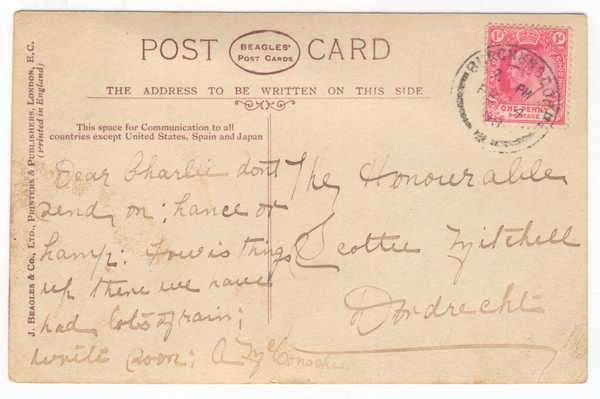 POST CARD
BEAGLES'
POST CARDS
THE ADDRESS TO BE WRITTEN ON THIS SIDE
This space for Communication to all
countries except United States, Spain and Japan
J. BEAGLES & CO., LTD., PRINTERS & PUBLISHERS, LONDON, E.C.
(Printed in England)
1d 1d
ONE PENNY
POSTAGE
PM
Dear Charlie dont
send on; hance or
hamp: How is things
up there we have
had lots of rain;
write soon: A
The Honourable
Scottie Mitchell
Dordrecht